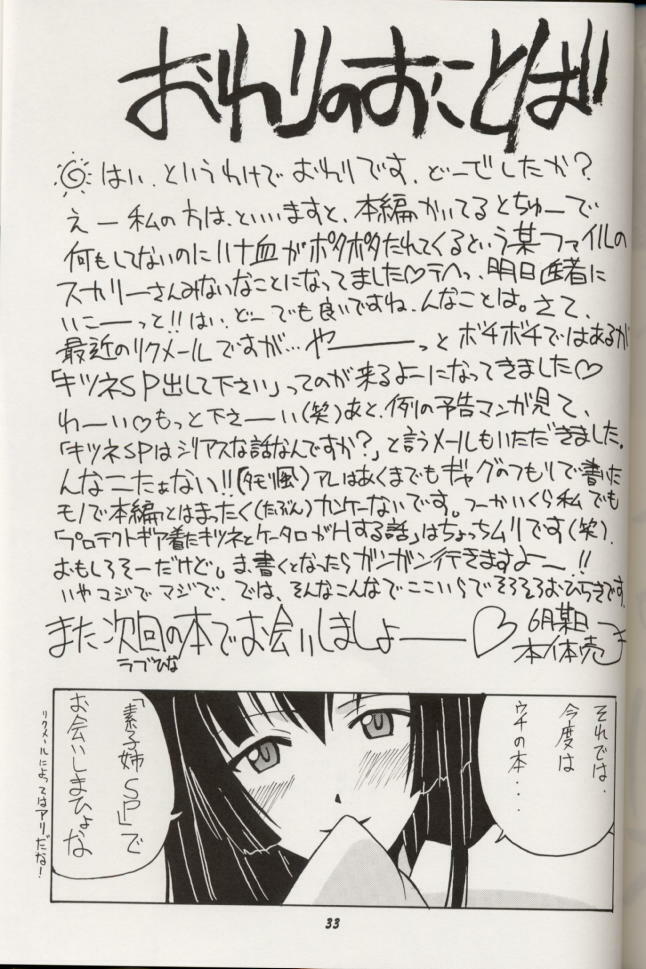 おわりのおことば
はい、というわけでおわりです、どーでしたか?
えー私の方は、といいますと、本編かいてるとちゅーで
何もしてないのにハナ血がポタポタたれてくるという某ファイルの
スカリーさんみたいなことになってました♡テヘっ、明日医者に
いこーーっと!!はい、どーでも良いですね、んなことは。さて、
最近のリクメールですが…やーーーっとボチボチではあるが
「キツネSP出して下さい」ってのが来るよーになってきました♡
わーい♡もっと下さーい(笑)あと、例の予告マンガ見て、
「キツネSPはシリアスな話なんですか?」と言うメールもいただきました。
んなこたぁない!!(タモリ風)アレはあくまでもギャグのつもりで書いた
モノで本編とはまったく(たぶん)カンケーないです。つーかいくら私でも
「プロテクトギア着たキツネとケータロがHする話」はちょっちムリです(笑)、
おもしろそーだけど。ま、書くとなったらガンガン行きますよー!!
いやマジでマジで、では、そんなこんなでここいらでそろそろおひらきです、
また次回の本でお会いしましょーーー♡
ラブひな
6月某日
本体売 子
それでは、
今度は
ウチの本・・・
「素子姉SP」で
お会いしまひょな
リクメールによってはアリだな!
33